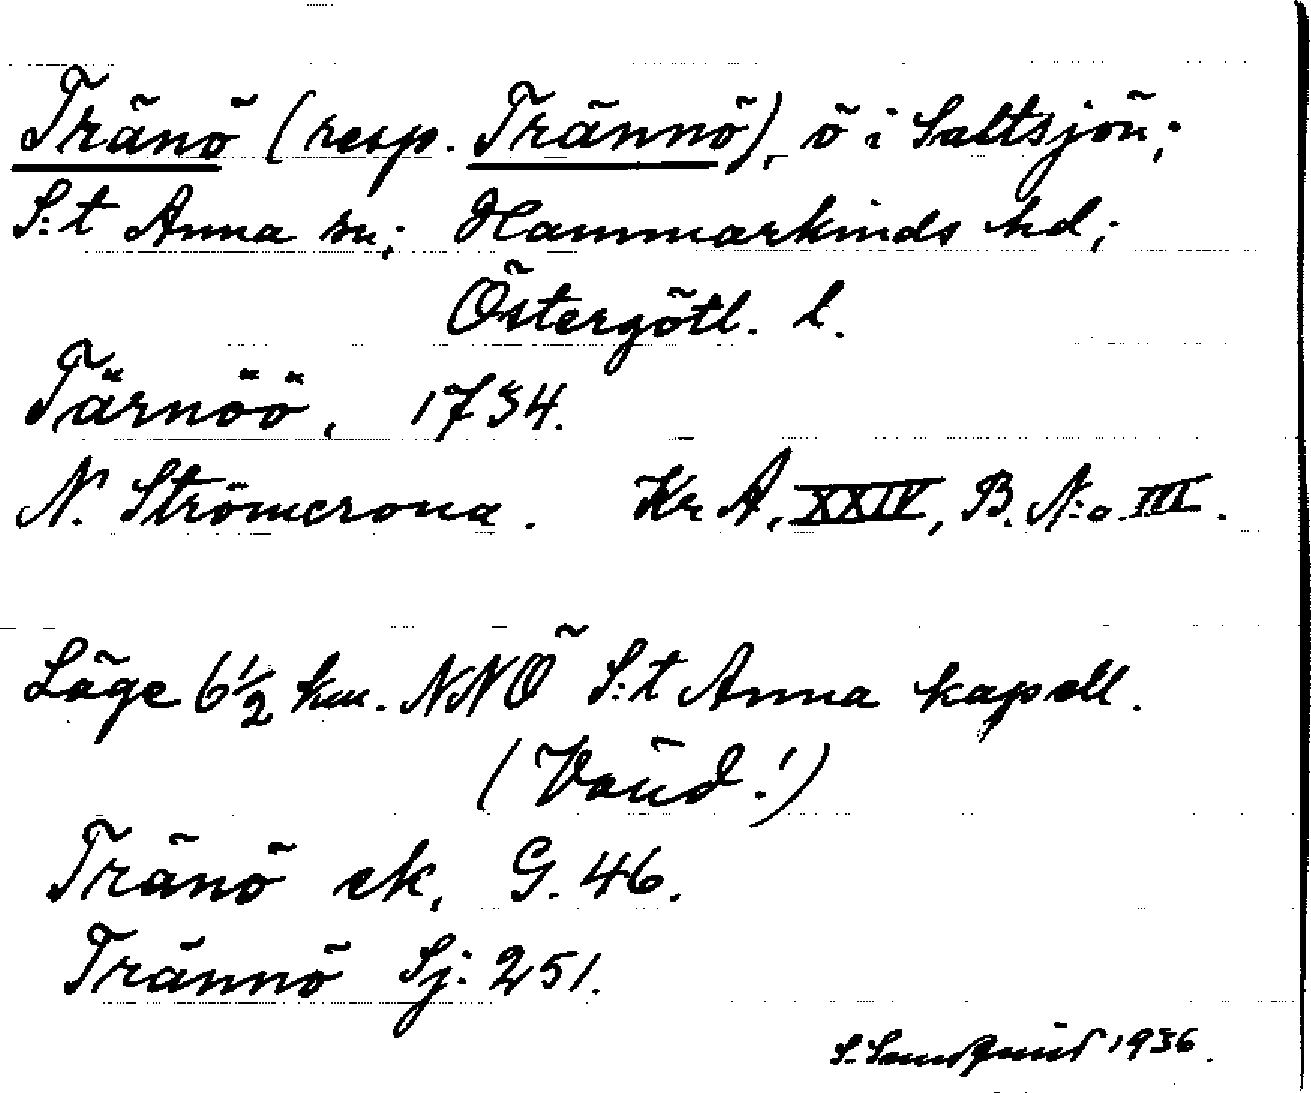 Tränö (resp. Trännö), ö i Saltsjön;
S:t Anna sn; Hammarkinds hd;
Östergötl. l.
Tärnöö, 1734.
N. Strömcrona. Kr A, XXIV, B. N:o III.
Läge 6 1/2 km. NNÖ S:t Anna kapell.
(Vänd!)
Tränö ek, G. 46.
Trännö Sj: 251.
S. 1936.